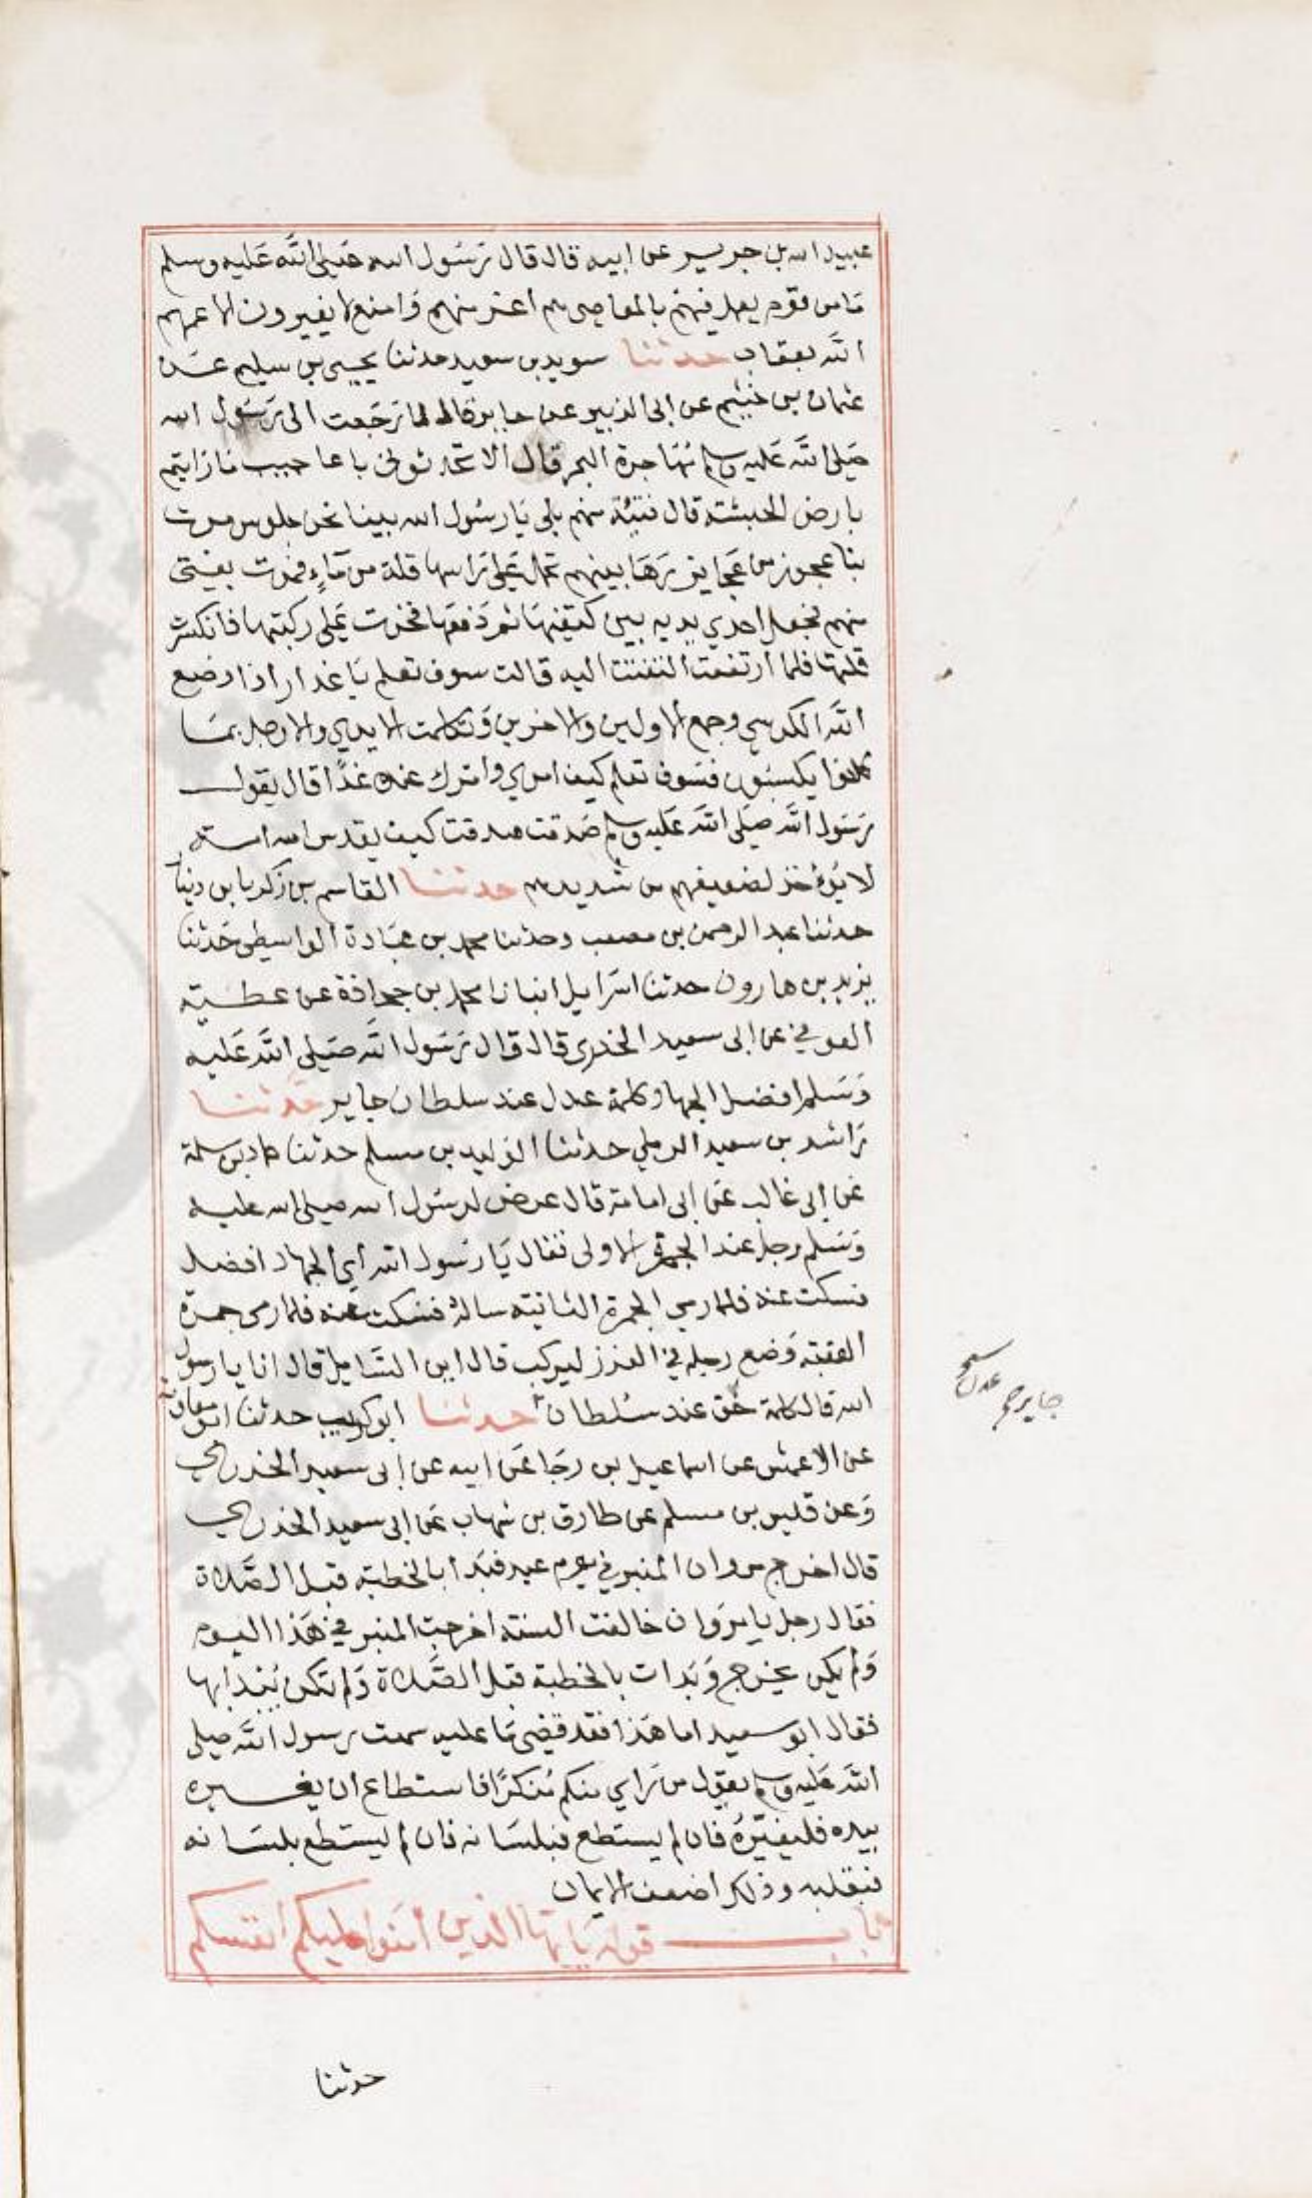 عبيد الله بن جرير عن ابيه قال قال رسول الله صلى الله عليه وسلم
ما من قوم يعمل فيهم بالمعاصي هم اعز منهم وامنع لا يغيرون الا عمهم
الله بعقاب حدثنا سويد بن سعيد حدثنا يحيى بن سليم عن
عثمان بن خثيم عن ابى الزبير عن جابر قال لما رجعت الى رسول الله
صلى الله عليه وسلم مهاجرة البحر قال الا تحدثونى باعاجيب ما رايتم
بارض الحبشة قال فتية منهم بلى يا رسول الله بينا نحن جلوس مرت
بنا عجوز من عجايز رهابينهم تحمل على راسها قلة من ماء فمرت بفتى
منهم فجعل احدي يديه بين كتفيها ثم دفعها فخرت على ركبتها فانكسرت
قلتها فلما ارتفعت التفتت اليه قالت سوف تعلم يا غدار اذا وضع
الله الكرسي وجمع الاولين والاخرين وتكلمت الايدي والارجل بما
كانوا يكسبون فسوف تعلم كيف امري وامرك عنده غدا قال يقول
رسول الله صلى الله عليه وسلم صدقت صدقت كيف يقدس الله امة
لا يؤخذ لضعيفهم من شديدهم حدثنا القاسم بن زكريا بن دينار
حدثنا عبد الرحمن بن مصعب وحدثنا محمد بن عبادة الواسطى حدثنا
يزيد بن هارون حدثنا اسرايل انبانا محمد بن جحادة عن عطية
العوفي عن ابى سعيد الخدرى قال قال رسول الله صلى الله عليه
وسلم افضل الجهاد كلمة عدل عند سلطان جاير حدثنا
راشد بن سعيد الرملي حدثنا الوليد بن مسلم حدثنا حماد بن سلمة
عن ابى غالب عن ابى امامة قال عرض لرسول الله صلى الله عليه
وسلم رجل عند الجمرة الاولى فقال يا رسول الله أي الجهاد افضل
فسكت عنه فلما رمي الجمرة الثانية ساله فسكت عنه فلما رمى جمرة
العقبة وضع رجله في الغرز ليركب قال اين السايل قال انا يا رسول
الله قال كلمة حق عند سلطان حدثنا ابو كريب حدثنا ابو معاوية
عن الاعمش عن اسماعيل بن رجا عن ابيه عن ابى سعيد الخدري
وعن قيس بن مسلم عن طارق بن شهاب عن ابى سعيد الخدري
قال اخرج مروان المنبر في يوم عيد فبدا بالخطبة قبل الصلاة
فقال رجل يا مروان خالفت السنة اخرجت المنبر في هذا اليوم
ولم يكن يخرج وبدات بالخطبة قبل الصلاة ولم تكن يبدا بها
فقال ابو سعيد اما هذا فقد قضى ما عليه سمعت رسول الله صلى
الله عليه وسلم يقول من راي منكم منكرا فاستطاع ان يغيره
بيده فليغيره فان لم يستطع فبلسانه فان لم يستطع بلسانه
فبقلبه وذلك اضعف الايمان
باب قوله يا ايها الذين امنوا عليكم انفسكم
جاير صح
حدثنا